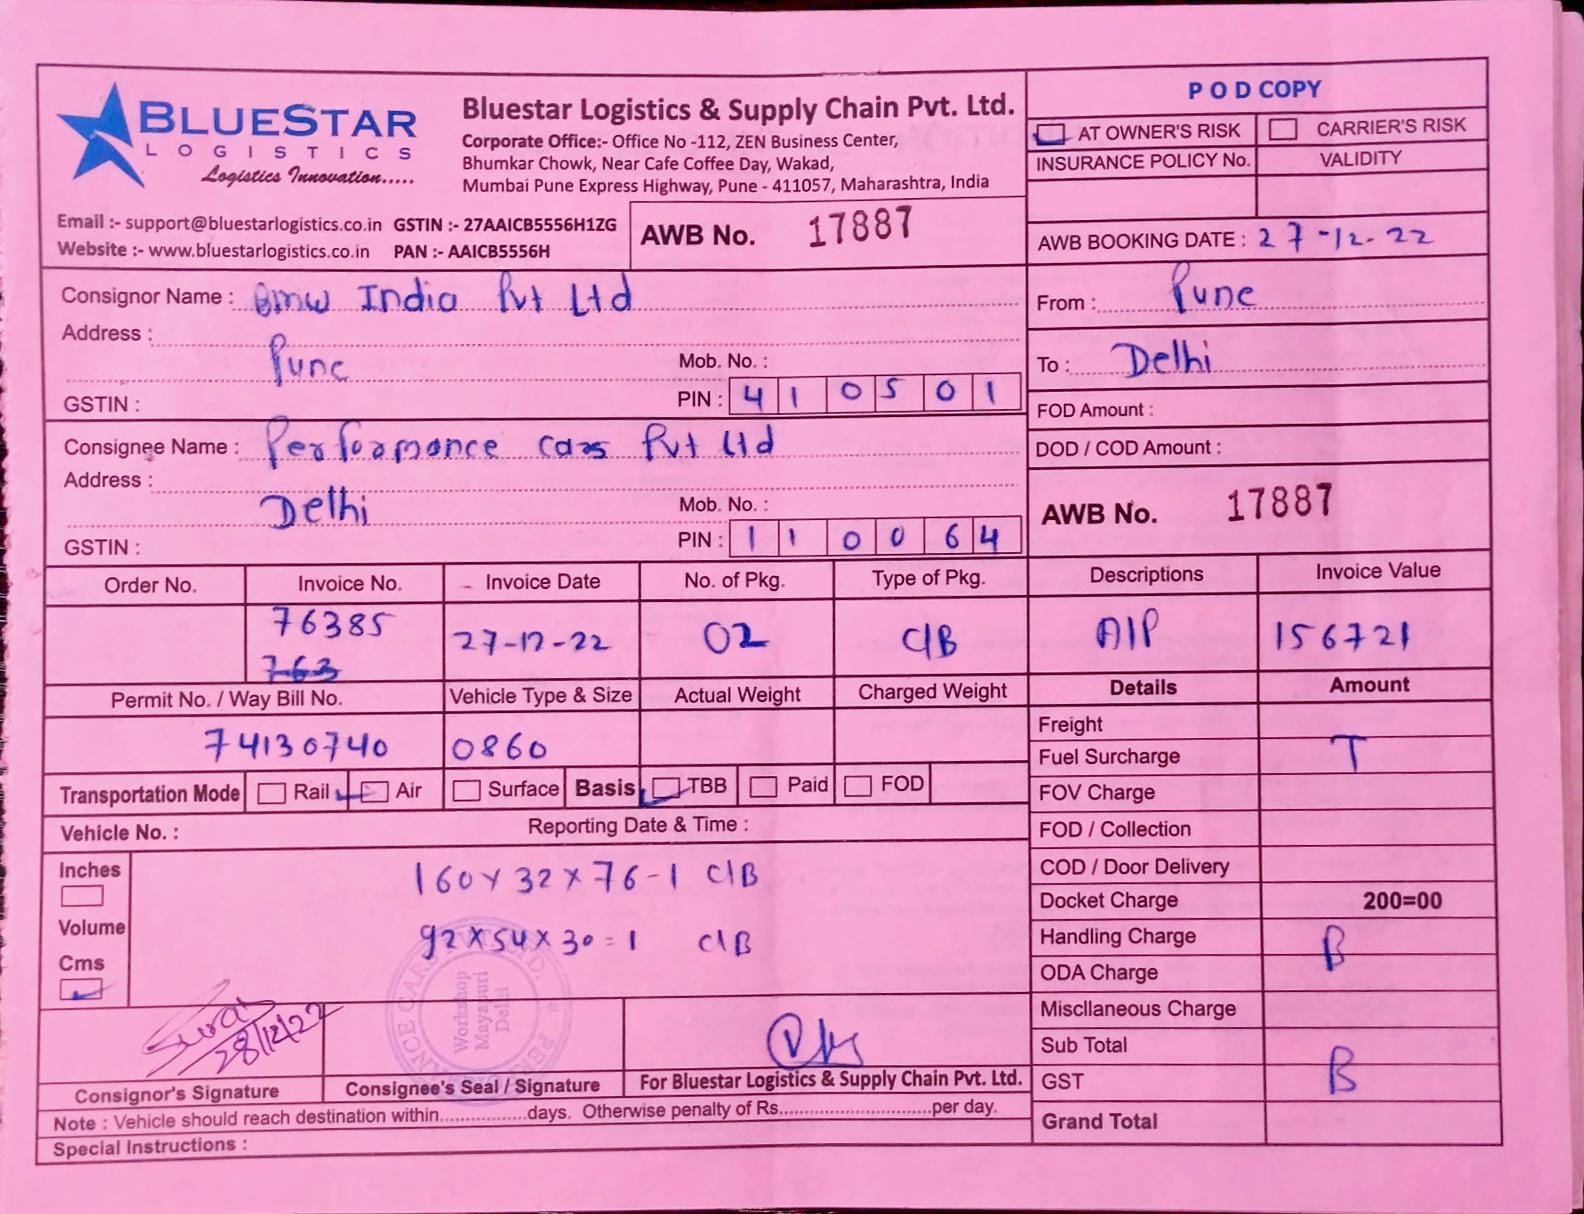 BLUESTAR
LOGISTICS
Logistics Innovation.....
Bluestar Logistics & Supply Chain Pvt. Ltd.
Corporate Office:- Office No -112, ZEN Business Center,
Bhumkar Chowk, Near Cafe Coffee Day, Wakad,
Mumbai Pune Express Highway, Pune - 411057, Maharashtra, India
P O D COPY
AT OWNER'S RISK CARRIER'S RISK
INSURANCE POLICY No. VALIDITY
Email :- support@bluestarlogistics.co.in GSTIN :- 27AAICB5556H1ZG
Website :- www.bluestarlogistics.co.in PAN :- AAICB5556H
AWB No. 17887
AWB BOOKING DATE : 27-12-22
Consignor Name : BMW India Pvt Ltd
Address :
Pune
Mob. No. :
GSTIN :
PIN : 410501
From : Pune
To : Delhi
FOD Amount :
Consignee Name : Performance cars Pvt Ltd
Address :
Delhi
Mob. No. :
GSTIN :
PIN : 110064
DOD / COD Amount :
AWB No. 17887
Order No. Invoice No. Invoice Date No. of Pkg. Type of Pkg. Descriptions Invoice Value
76385 27-12-22 02 C/B A/P 156721
763
Permit No. / Way Bill No. Vehicle Type & Size Actual Weight Charged Weight
74130740 0860
Transportation Mode Rail Air Surface Basis TBB Paid FOD
Vehicle No. : Reporting Date & Time :
Inches
Volume
Cms
160 x 32 x 76 - 1 C/B
92 x 54 x 30 = 1 C/B
Details Amount
Freight
Fuel Surcharge T
FOV Charge
FOD / Collection
COD / Door Delivery
Docket Charge 200=00
Handling Charge B
ODA Charge
Miscllaneous Charge
Sub Total
GST B
Grand Total
Workshop
Mayapuri
Delhi
28/12/22
Consignor's Signature Consignee's Seal / Signature For Bluestar Logistics & Supply Chain Pvt. Ltd.
Note : Vehicle should reach destination within.................days. Otherwise penalty of Rs................................per day.
Special Instructions :